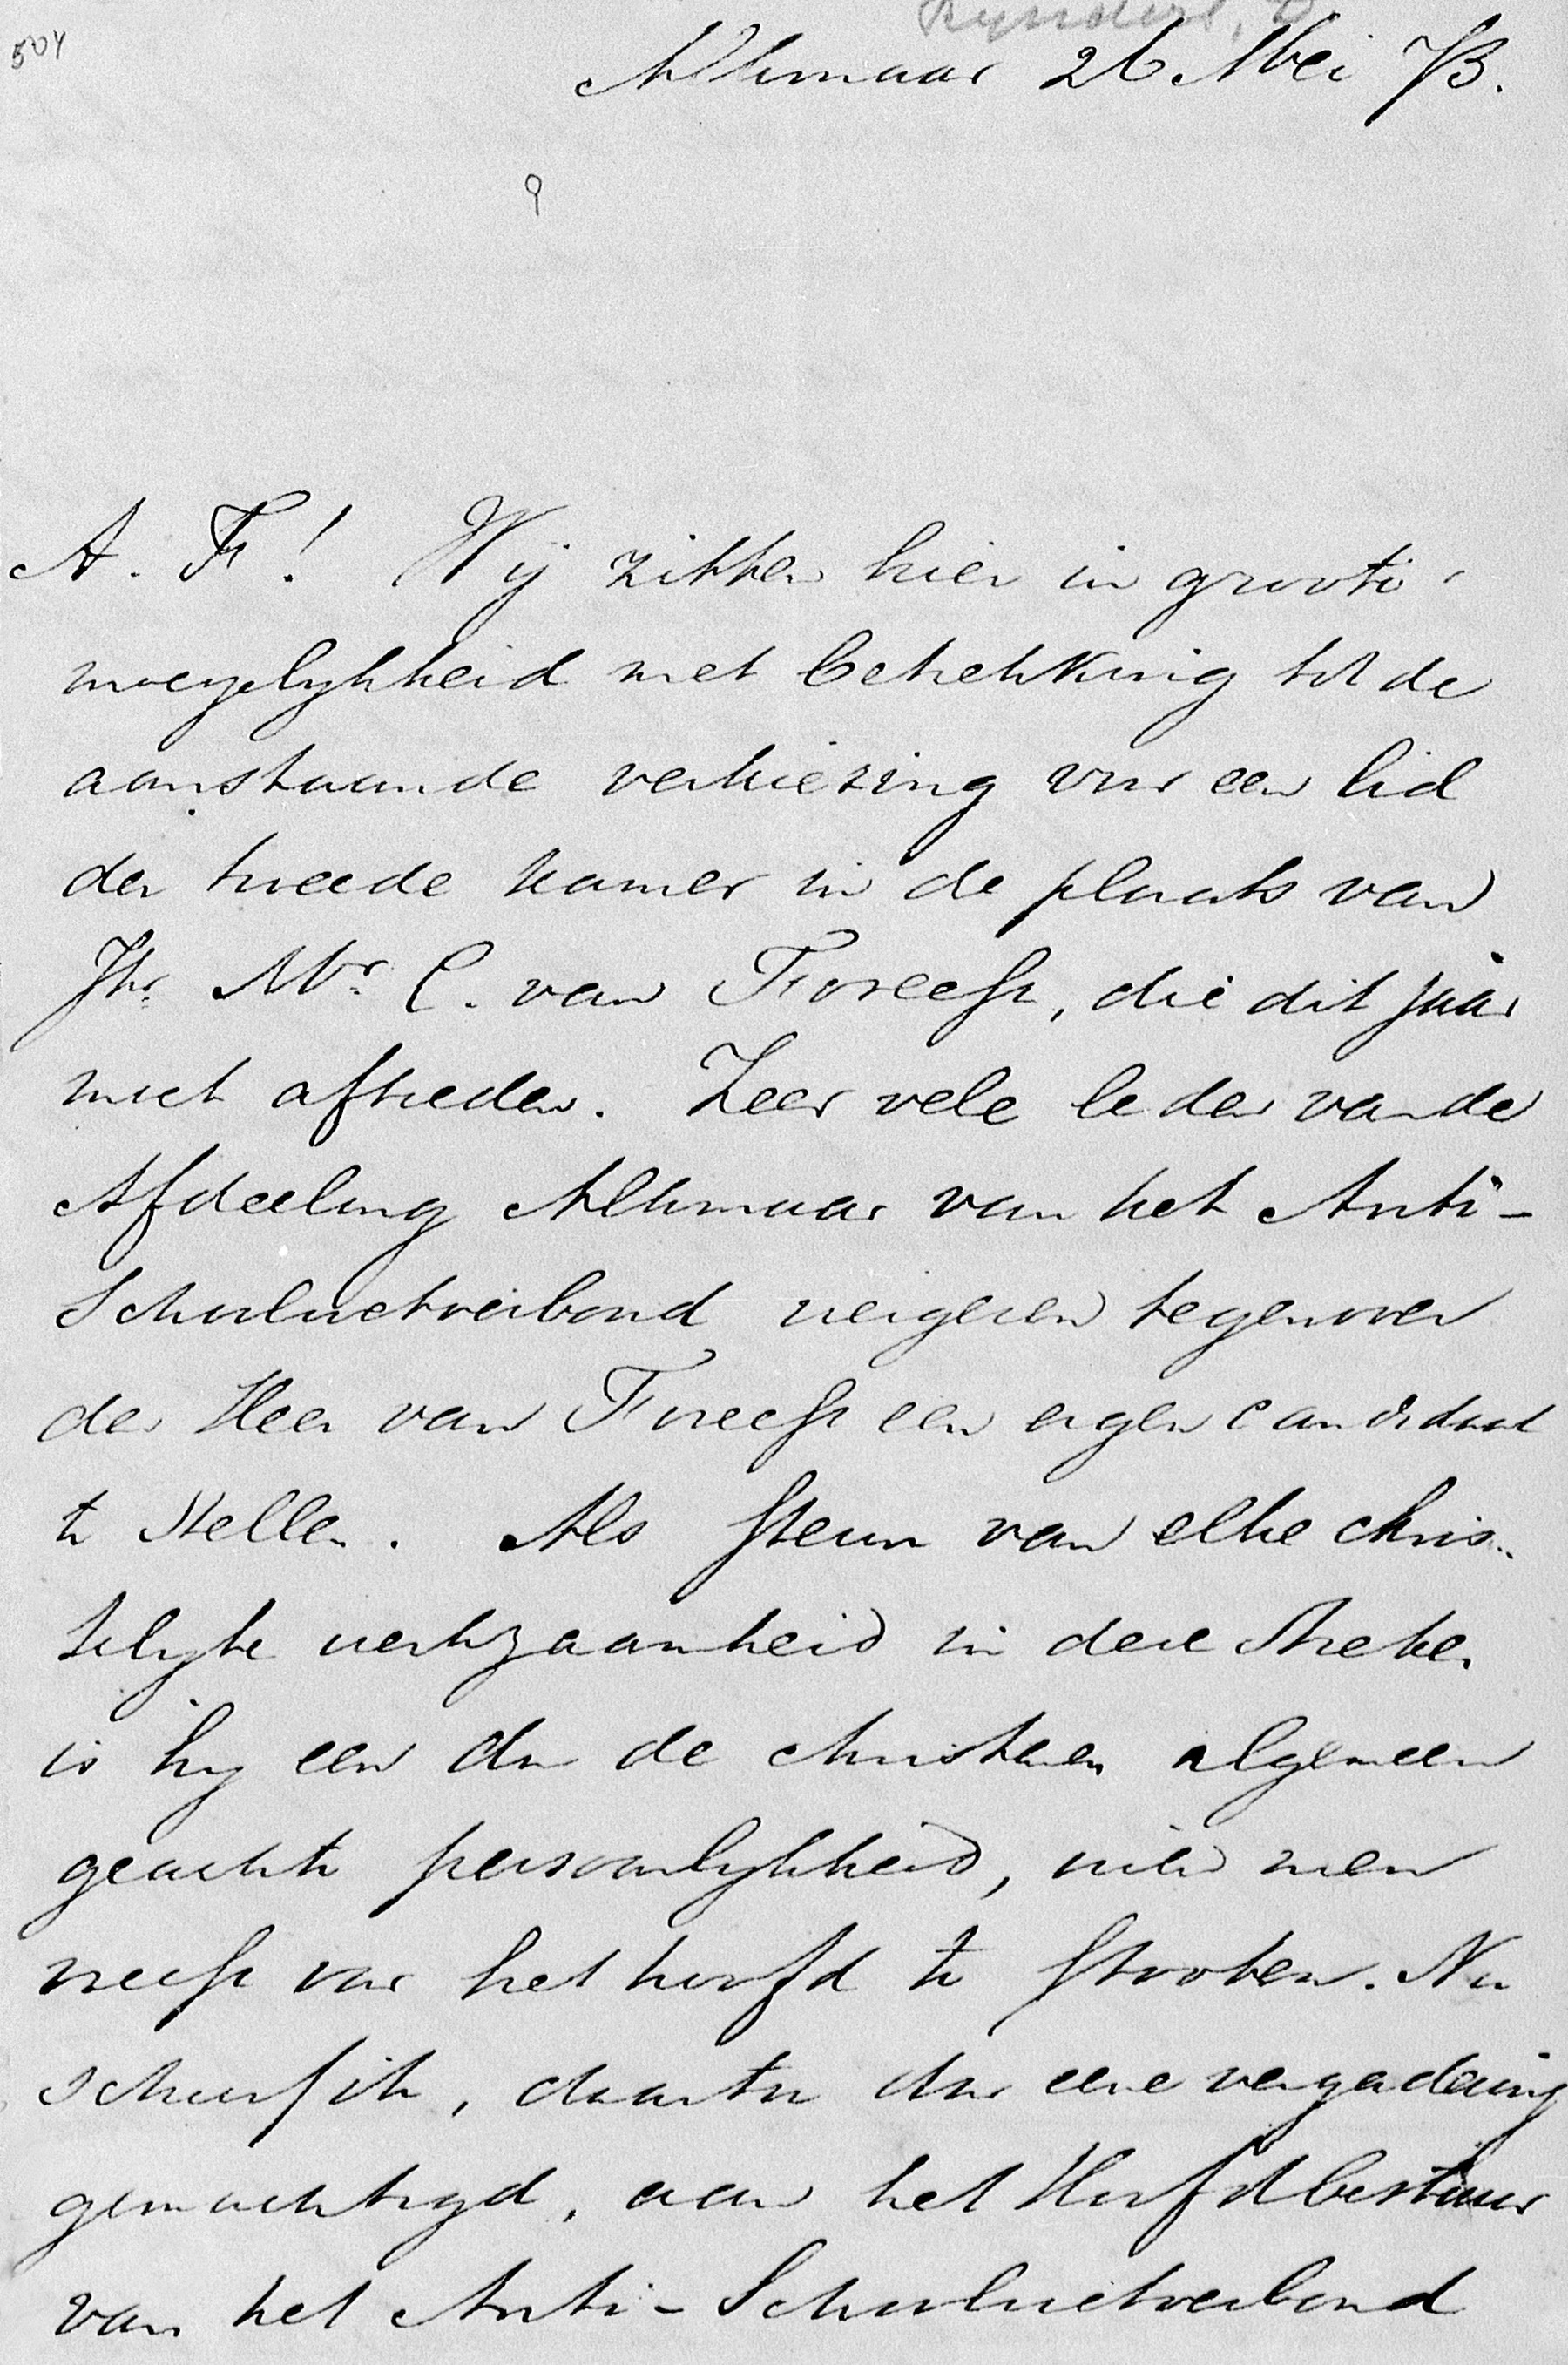 504
Alkmaar 26 Mei 73.
A. Fr! Wij zitten hier in groote
moeyelykheid met betrekking tot de
aanstaande verkiezing voor een lid
der tweede kamer in de plaats van
Jhr. Mr. C. van Foreest, die dit jaar
moet aftreden. Zeer vele leden van de
Afdeeling Alkmaar van het Anti-
Schoolwetverbond weigeren tegenover
den Heer van Foreest een eigen candidaat
te stellen. Als steun van elke chris-
telyke werkzaamheid in deze streken
is hy een door de christenen algemeen
geachte persoonlykheid, wien men
vreest voor het hoofd te stooten. Nu
schreef ik, daartoe door eene vergadering
gemachtigd, aan het Hoofdbestuur
van het Anti-Schoolwetverbond